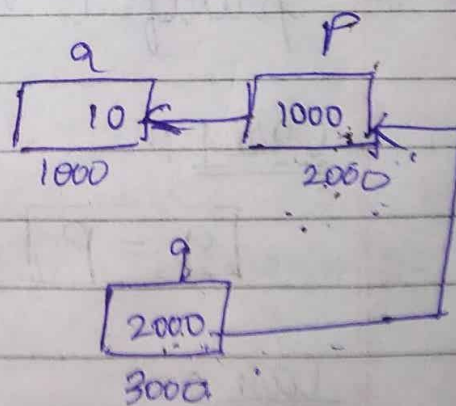 a P
10 1000
1000 2000
q
2000
3000